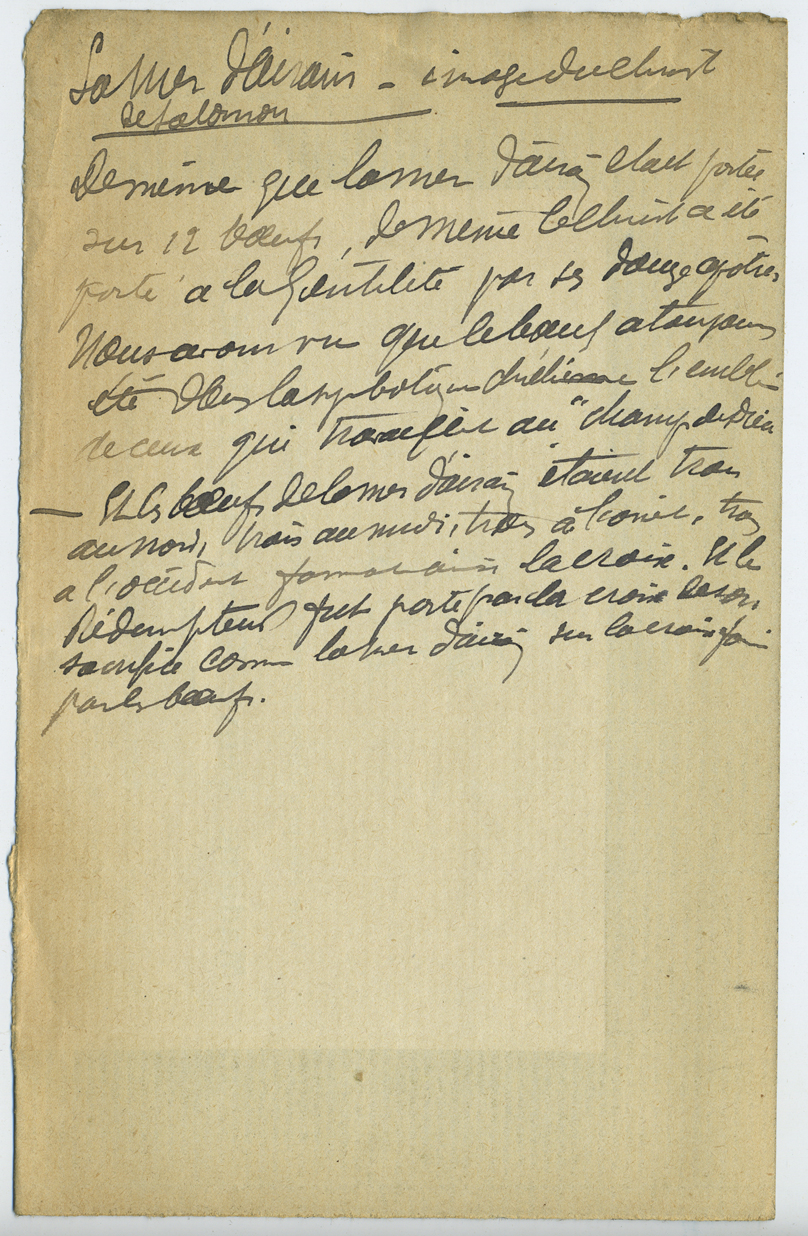 La Mer d'Airain - image du Christ
de Salomon
De même que la mer d'airain était portée
sur 12 bœufs, de même le Christ a été
porté à la Gentilité par ses douze apôtres.
Nous avons vu que le bœuf a toujours
été dans la symbolique chrétienne l'emblème
de ceux qui travaillent au "champ de Dieu"
— Et les bœufs de la mer d'airain étaient trois
au nord, trois au midi, trois à l'orient, trois
à l'occident formant ainsi la croix. Et le
Rédempteur fut porté par la croix de son
sacrifice comme la mer d'airain sur la croix
par les bœufs.